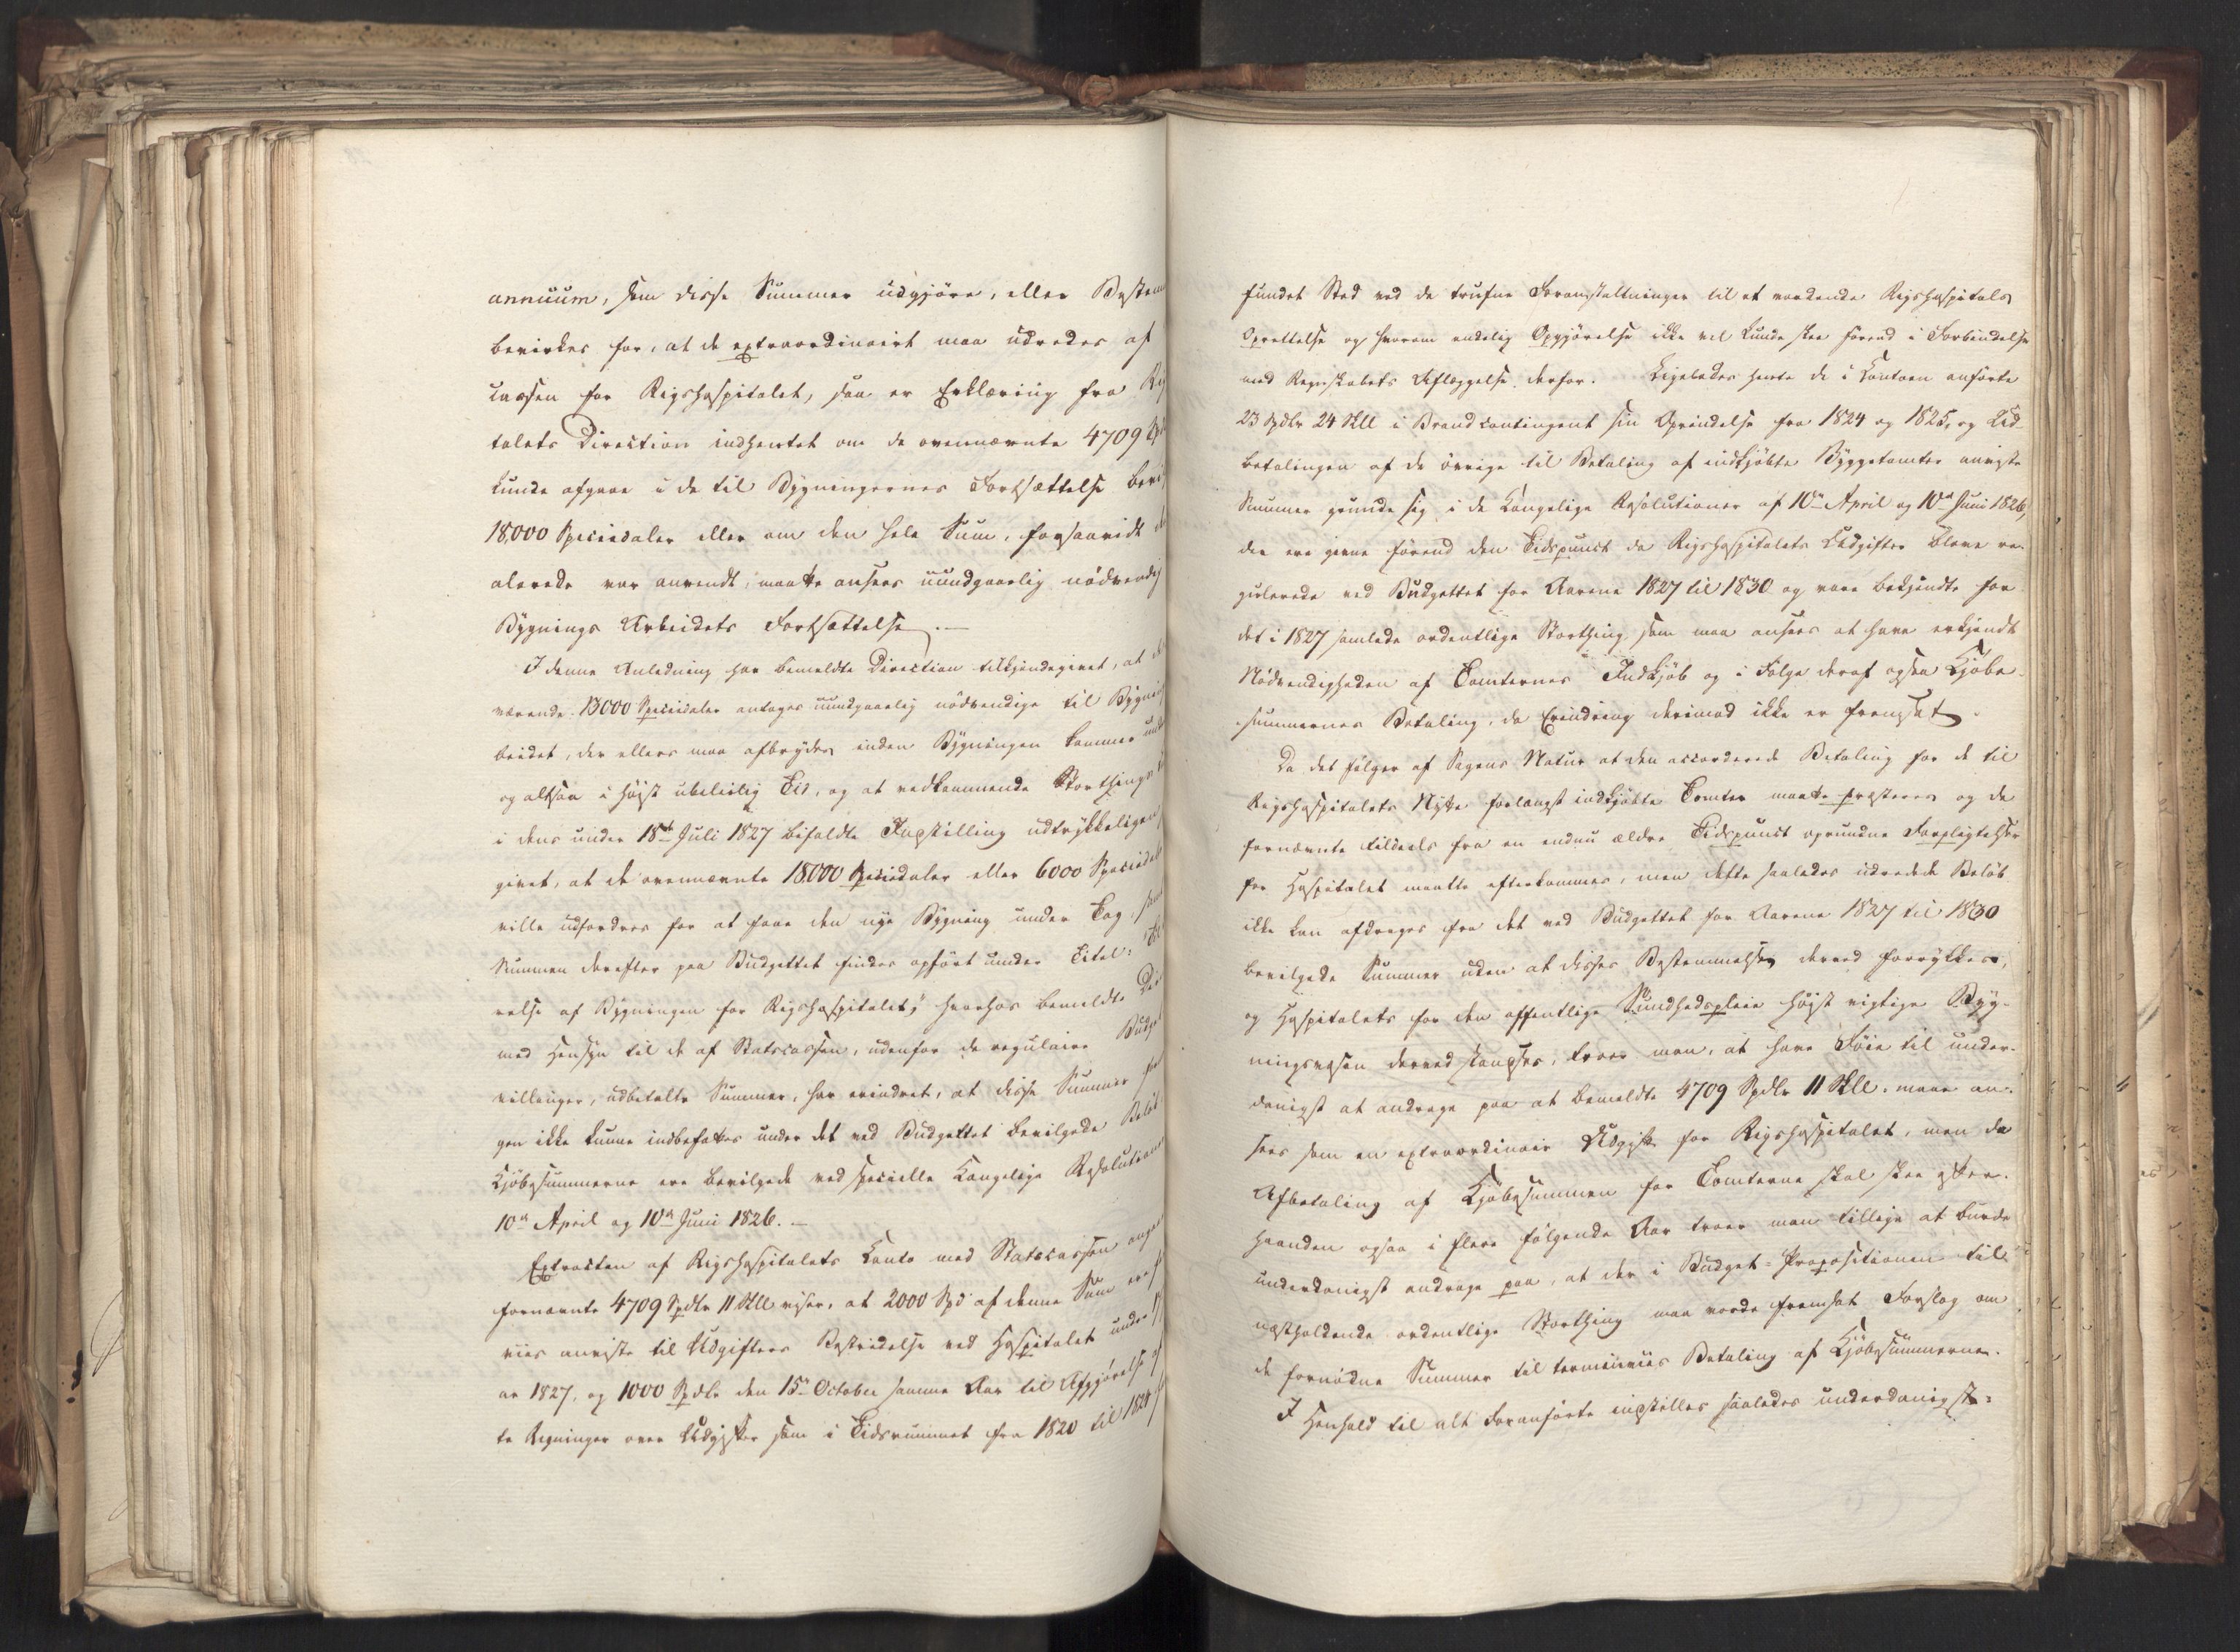 annuum, som disse Summer udgjøre, eller Bestem
bevirkes for, at de extraordinairt maa udredes af
cassen for Rigshospitalet, saa er Erklæring fra Rig
talets Direction indhentet om de ovennævnte 4709 Sp
kunde afgaae i de til Bygningernes Fortsættelse bevi
18,000 Speciedaler eller om den hele Sum, forsaavidt
alerede var anvendt, maatte ansees uundgaaelig nødvendig
Bygnings Arbeidets Fortsættelse. —
I denne Anledning har bemeldte Direction tilkjendegivet, at de
værende 13000 Speciedaler antages uundgaaelig nødvendige til Bygnin
beidet, der ellers maa afbrydes inden Bygningen kommer und
og altsaa i høist ubeleilig Tid, og at vedkommende Storthings
i dens under 18de Juli 1827 bifaldte Indstilling udtrykkeligen
givet, at de ovennævnte 18000 Speciedaler eller 6000 Speciedal
ville udfordres for at faae den nye Bygning under Tag,
Summen derefter paa Budgettet findes opført under Titel:
relse af Bygningen for Rigshospitalet," hvorhos bemeldte Di
med Hensyn til de af Statscassen, udenfor de regulaire Budget
villinger, udbetalte Summer, har erindret, at disse Summer
gen ikke kunne indbefattes under det ved Budgettet bevilgede Beløb
Kjøbesummerne ere bevilgede ved specielle Kongelige Resolutioner
10de April og 10de Juni 1826. —
Extracten af Rigshospitalets Conto med Statscassen ang
fornævnte 4709 Spdlr 11 Skll viser, at 2000 Spd af denne Sum ere
viis anviste til Udgifters Bestridelse ved Hospitalet under
ar 1827, og 1000 Spdlr den 15de October samme Aar til Afgjørelse af
te Regninger over Udgifter som i Tidsrummet fra 1820 til 1824
fundet Sted ved de trufne Foranstaltninger til et vordende Rigshospitals
Oprettelse og hvorom endelig Opgjørelse ikke vel kunde skee førend i Forbindelse
med Regnskabets Aflæggelse derfor. Ligeledes have de i Contoen anførte
23 Spdlr 24 Skll i Brandcontingent sin Oprindelse fra 1824 og 1825, og Ud-
betalingen af de øvrige til Betaling af indkjøbte Byggetomter anviste
Summer grunde sig i de Kongelige Resolutioner af 10de April og 10de Juni 1826,
der ere givne førend den Tidspunct da Rigshospitalets Udgifter bleve re-
gulerede ved Budgettet for Aarene 1827 til 1830 og vare bekjendte for
det i 1827 samlede ordentlige Storthing, som maa ansees at have erkjendt
Nødvendigheden af Tomternes Indkjøb og i Følge deraf ogsaa Kjøbe-
summernes Betaling, da Erindring derimod ikke er fremsat.
Da det følger af Sagens Natur at den accorderede Betaling for de til
Rigshospitalets Nytte forlængst indkjøbte Tomter maatte præsteres og de
fornævnte tildeels fra en endnu ældre Tidspunct oprundne Forpligtelser
for Hospitalet maatte efterkommes, men dette saaledes udredede Beløb
ikke kan afdrages fra det ved Budgettet for Aarene 1827 til 1830
bevilgede Summer uden at disses Bestemmelser derved forrykkes,
og Hospitalets for den offentlige Sundhedspleie høist vigtige Byg-
ningsvæsen derved standses, troer man, at have Føie til under-
danigst at andrage paa at bemeldte 4709 Spdlr 11 Skll. maae an-
sees som en extraordinair Udgift for Rigshospitalet, men da
Afbetaling af Kjøbesummen for Tomterne skal skee efter-
haanden ogsaa i flere følgende Aar troer man tillige at burde
underdanigst andrage paa, at der i Budget-Propositionen til
næstholdende ordentlige Storthing maa vorde fremsat Forslag om
de fornødne Summer til terminviis Betaling af Kjøbesummerne.
I Henhold til alt Foranførte indstilles saaledes underdanigst: